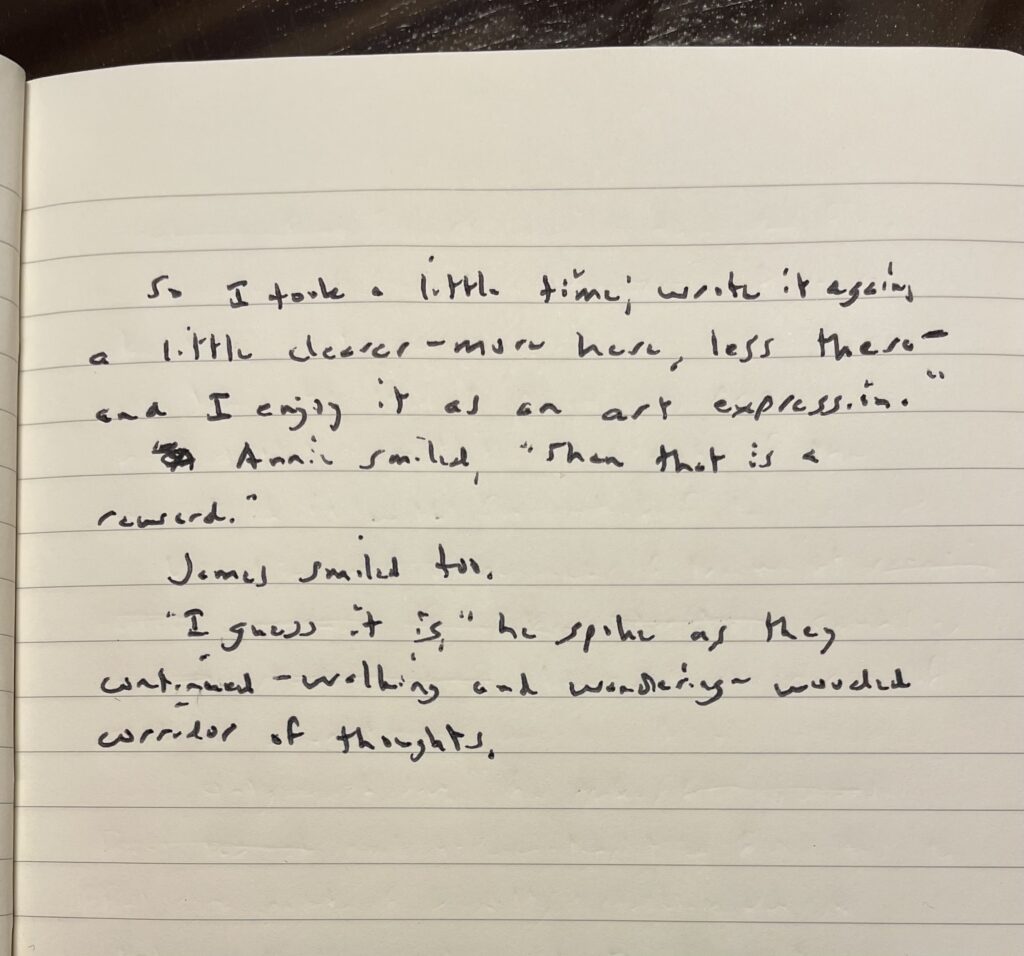 So I took a little time; wrote it again,
a little clearer - more here, less there -
and I enjoy it as an art expression."
Annie smiled, "Then that is a
reward."
James smiled too.
"I guess it is," he spoke as they
continued - walking and wondering - wooded
corridor of thoughts.